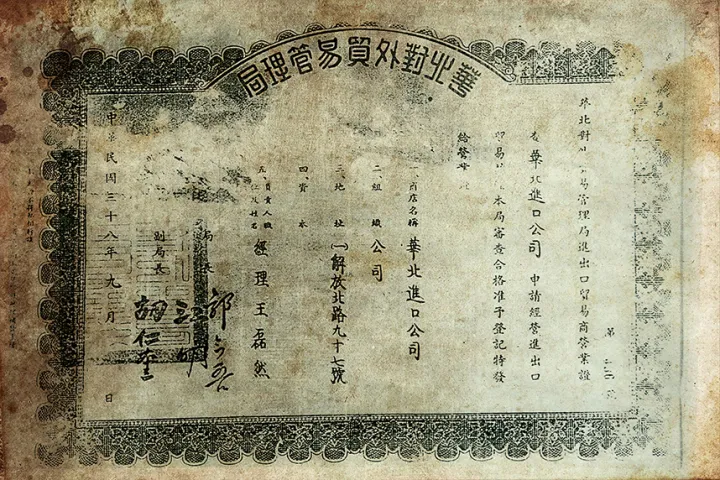 華北對外貿易管理局
華北對 貿易管理局進出口貿易商營業證
第
查 華北進口公司 申請經營進出口
貿易 本局審查合格准予登記特發
給營業
一、商店名稱 華北進口公司
二、組織 公司
三、地址 (一)解放北路九十七號
四、資本
五、負責人職 及姓名 經理王磊然
局長
副局長
江明
胡仁奎
中華民國三十八年九 月 日